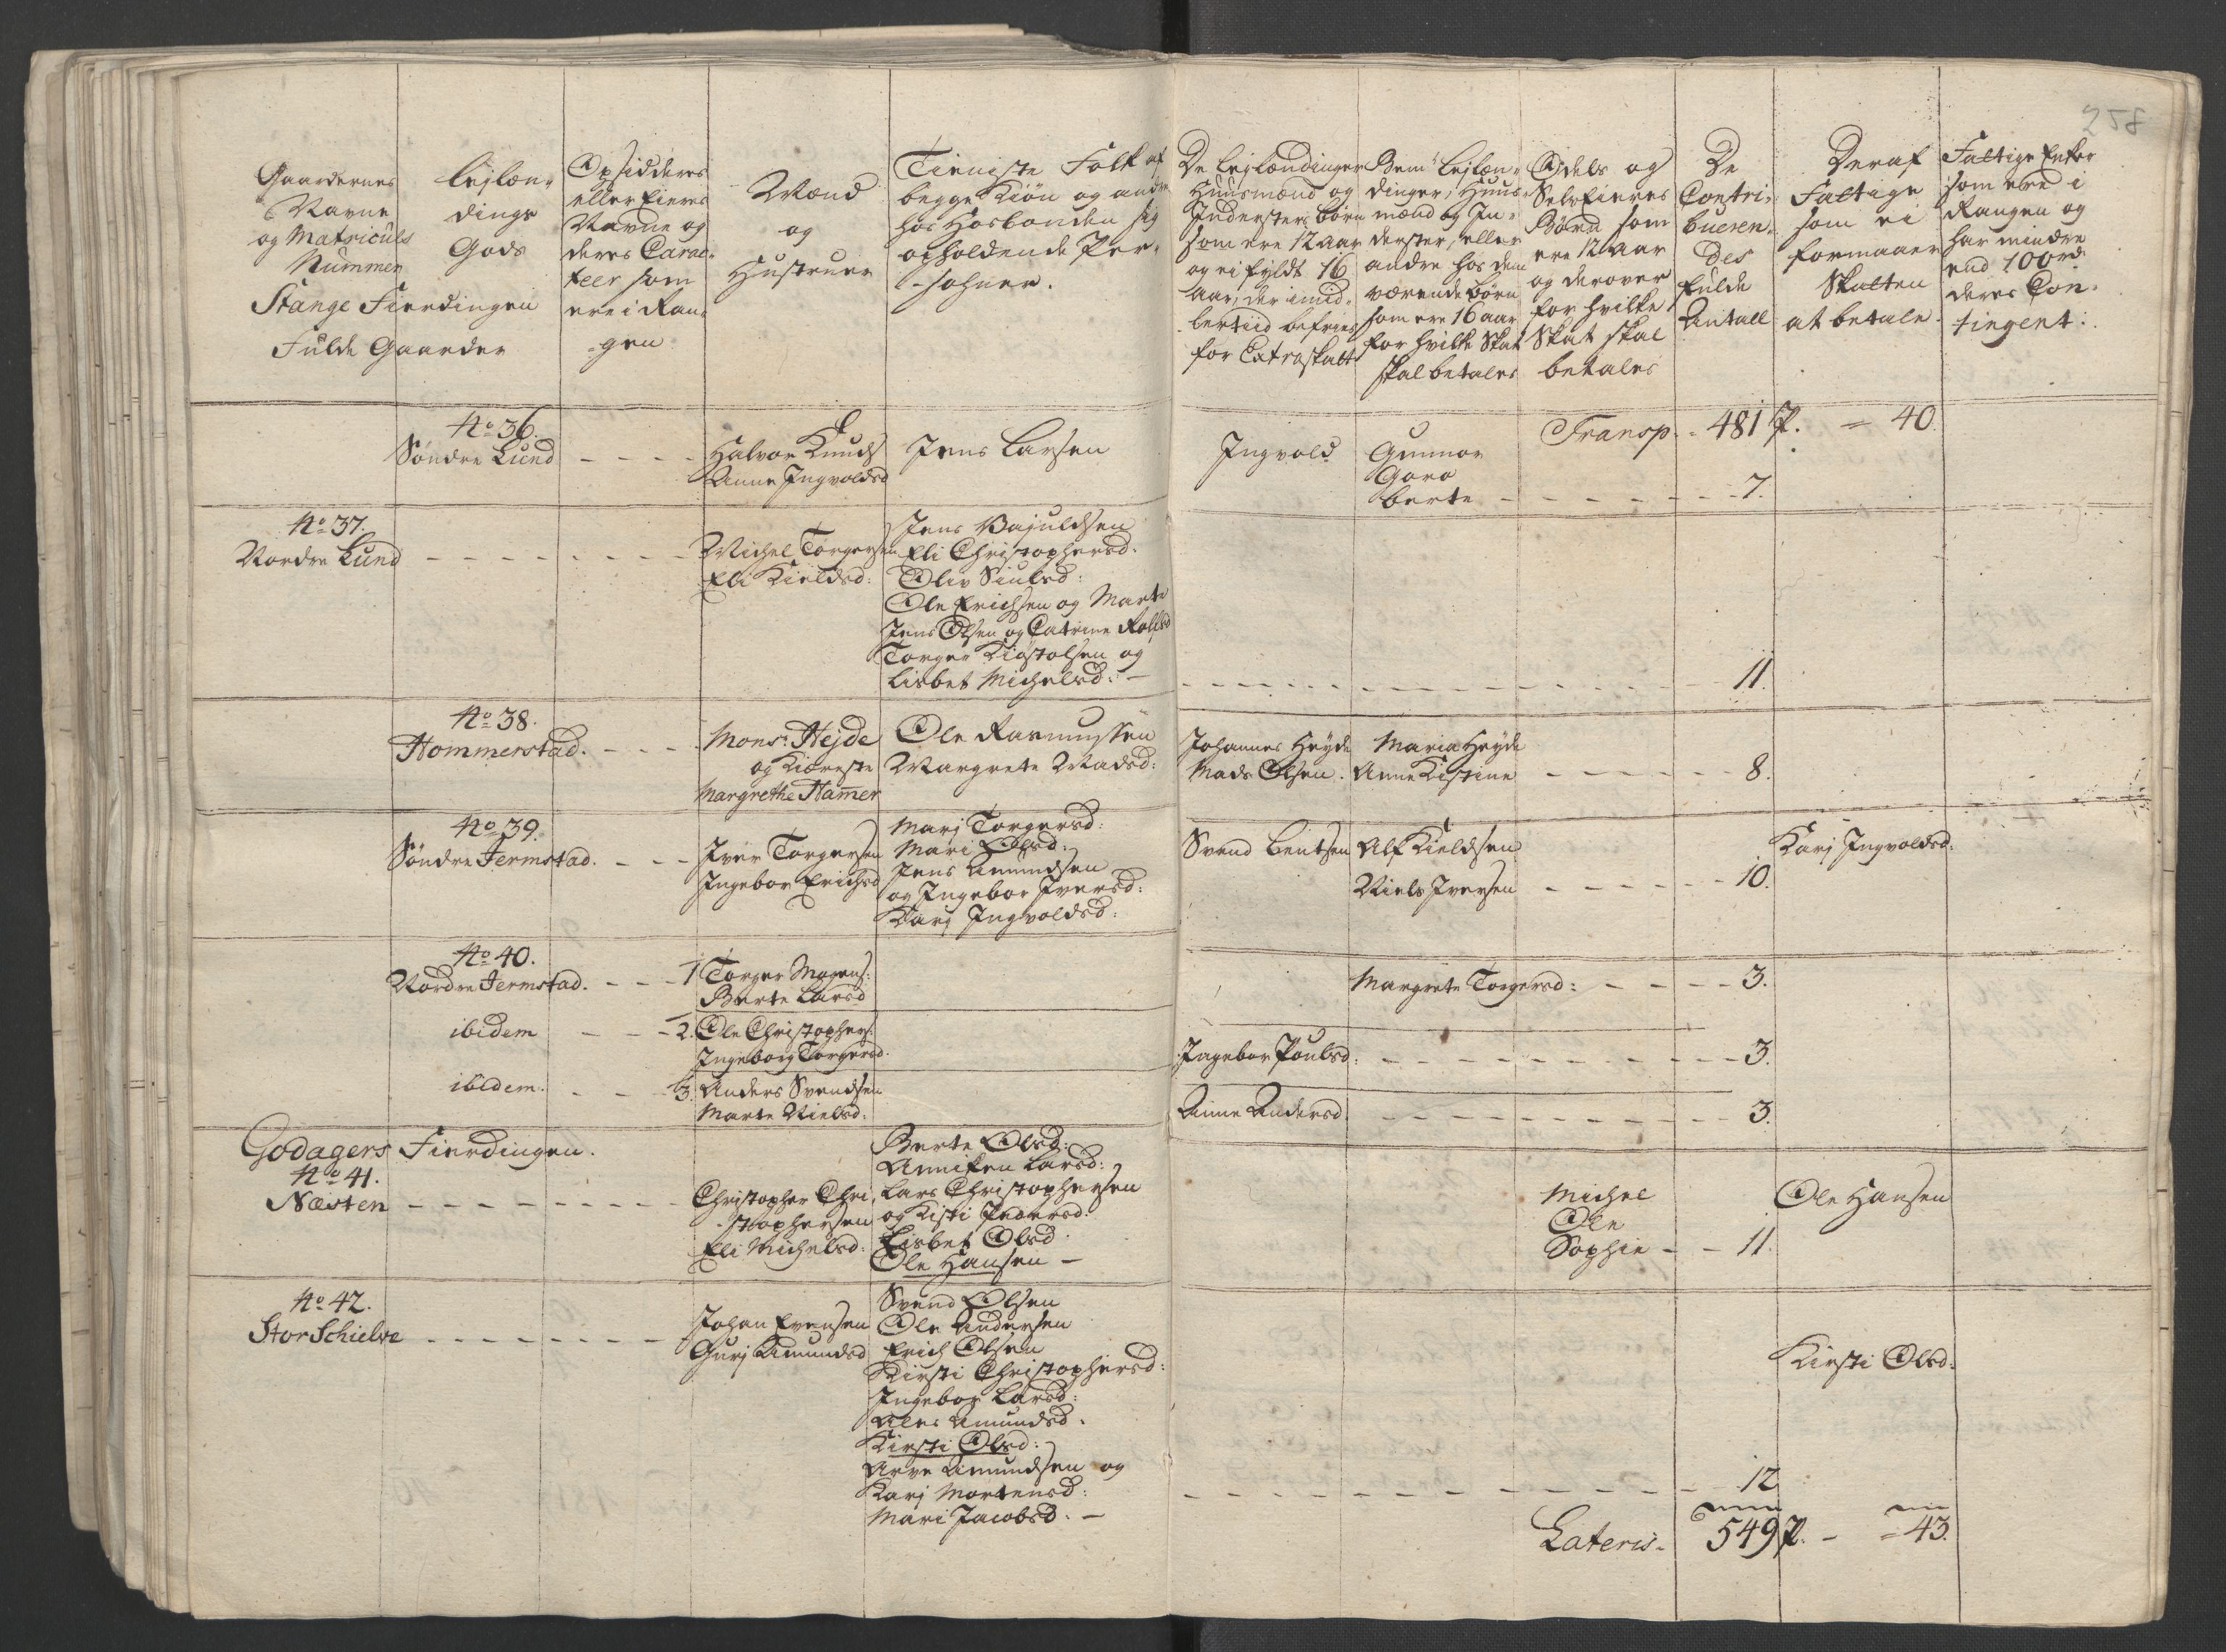 258
Gaardernes
Navne
og Matriculs
Nummer
Stange Fierdingen
Fulde Gaarder
Lejlæn-
dings
Gods
Opsidderes
eller Eieres
Navne og
deres Carac-
teer som
ere i Ran-
gen
Mænd
og
Hustruer
Tieniste Folk af
begge Kiön og andre
hos Hosbonden sig
opholdende Per-
sohner.
De Lejlændinger
Huusmænd og
Inderster Börn
som ere 12 aar
og ei fyldt 16
aar, der imid-
lertiid befries
for Extraskatt
Bem.te Lejlæn-
dinger, Huus-
mænd og In-
derster, eller
andre hos dem
værende Börn
som ere 16 aar
for hvilke Skat
skal betales
Odels og
Selv Eieres
Börn som
ere 12 aar
og derover
for hvilke
Skat skal
betales
De
Contri-
bueren-
des
fulde
Antall
Deraf
Fattige
som ei
formaaer
Skatten
at betale
Fattige Enker
som ere i
Rangen og
har mindre
end 100 rd
deres Con-
tingent.
Transp. 481 P. = 40.
No 36.
Söndre Lund - - - - Halvor Knuds
Anne Ingvoldsd
Jens Larsen
Ingvold
Gunnor
Goro
Berte - - - - - 7.
No 37.
Nordre Lund - - - - - Michel Torgersen
Eli Kieldsd:
Jens Bajuldsen
Eli Christophersd.
Oliv Siulsd:
Ole Erichsen og Marte
Jens Olsen og Catrine
Torger Kiöstolsen og
Lisbet Michelsd: - - - - - 11.
No 38.
Hommerstad. - - - Mons: Hejde
og Kiæreste
Margrethe Hamer
Ole Rasmussen
Margrete Madsd:
Johannes Heyde
Mads Olsen.
Maria Heyde
Anne Kistine - - - - - 8.
No 39.
Söndre Jermstad. - - - Iver Torgersen
Ingebor Erichsd
Marj Torgersd:
Mari Olsd:
Jens Amundsen
og Ingebor Iversd:
Karj Ingvoldsd:
Svend Bentsen
Alf Kieldsen
Niels Iversen - - - - - 10.
Karj Ingvoldsd:
No 40.
Nordre Jermstad. - - - 1 Torger Mogens:
Berte Larsd
Margrete Torgersd: - - - - 3.
ibidem - - - 2. Ole Christophers:
Ingeborg Torgersd.
Ingebor Poulsd: - - - - - 3.
ibidem. - - - 3. Anders Svendsen
Marte Nielsd:
Anne Andersd. - - - - - 3.
Godagers Fierdingen.
No 41.
Næsten - - - - - - - Christopher Chri
stophersen
Eli Michelsd:
Berte Olsd:
Anniken Larsd:
Lars Christophersen
og Kisti Pedersd:
Lisbet Olsd.
Ole Hansen -
Michel
Ole
Sophie - - 11.
Ole Hansen
No 42.
Stor Schielve - - - - - - Johan Evensen
Gurj Amundsd
Svend Olsen
Ole Andersen
Erich Olsen
Kirsti Christophersd:
Ingebor Larsd:
Ales Amundsd.
Kirsti Olsd:
Arve Amundsen og
Karj Mortensd:
Mari Jacobsd. - - - - - - 12
Kirsti Olsd:
Lateris. 549 P. - = 43.